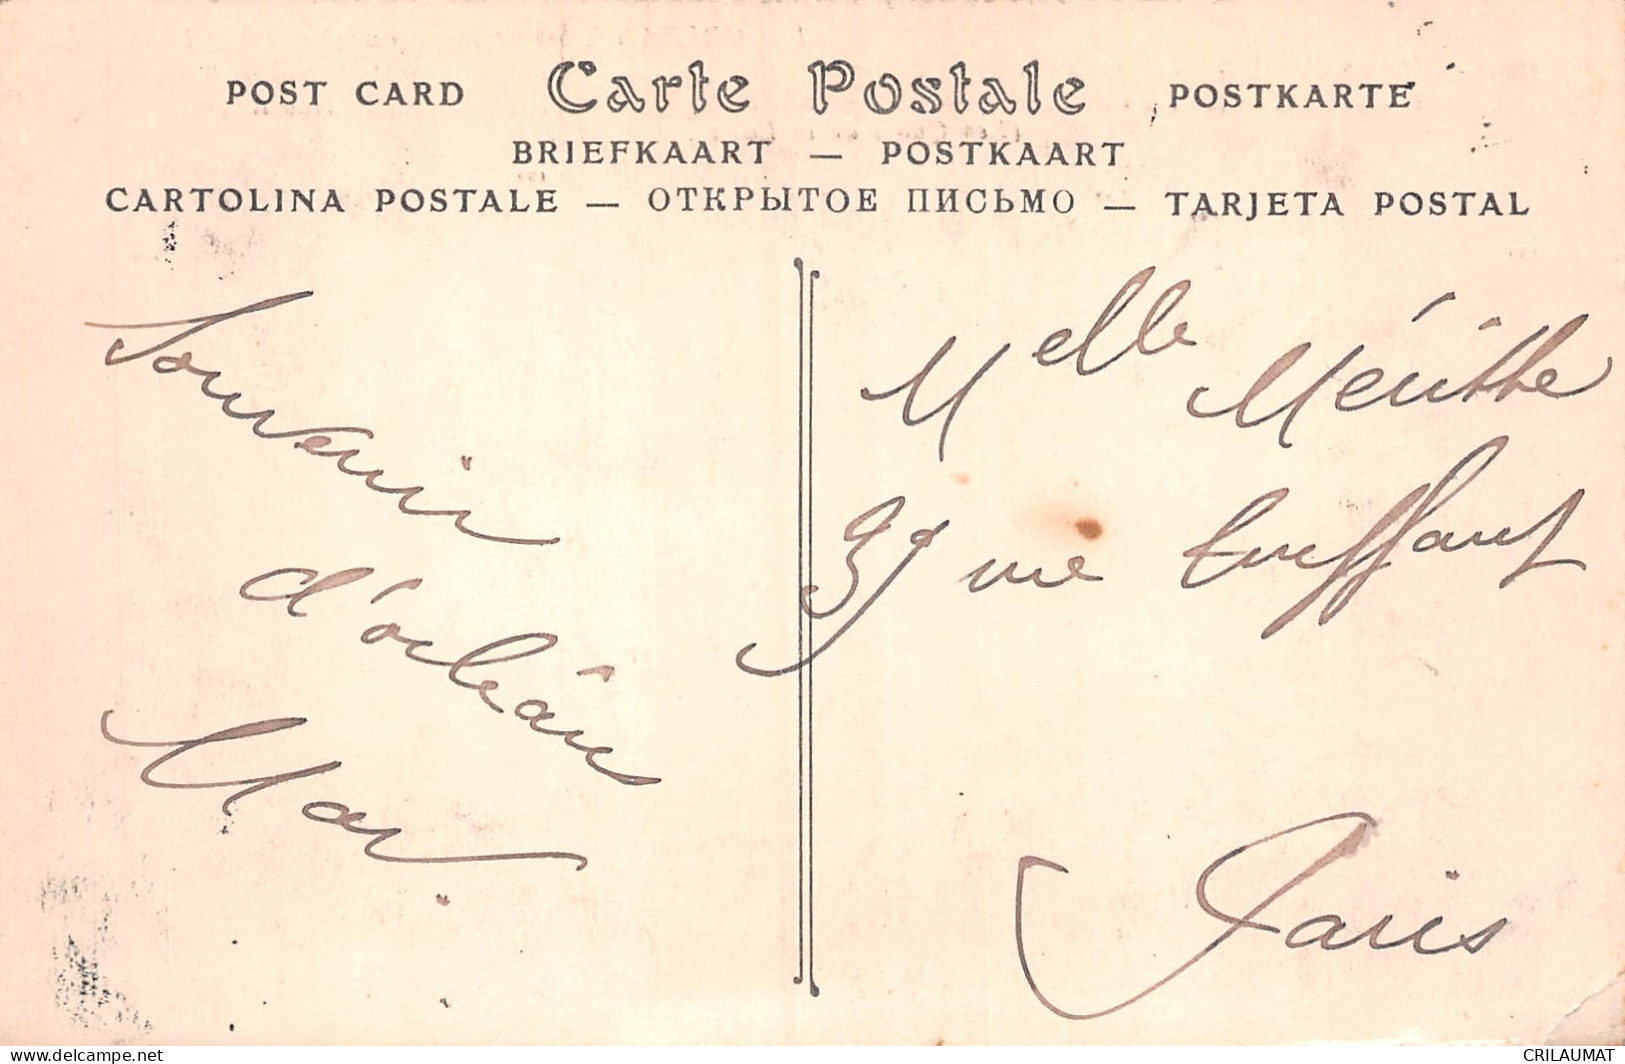 POST CARD Carte Postale POSTKARTE
BRIEFKAART — POSTKAART
CARTOLINA POSTALE — ОТКРЫТОЕ ПИСЬМО — TARJETA POSTAL
Souvenir
d'orléans
Melle
39 rue
Paris
delcampe.net
CRILAUMAT